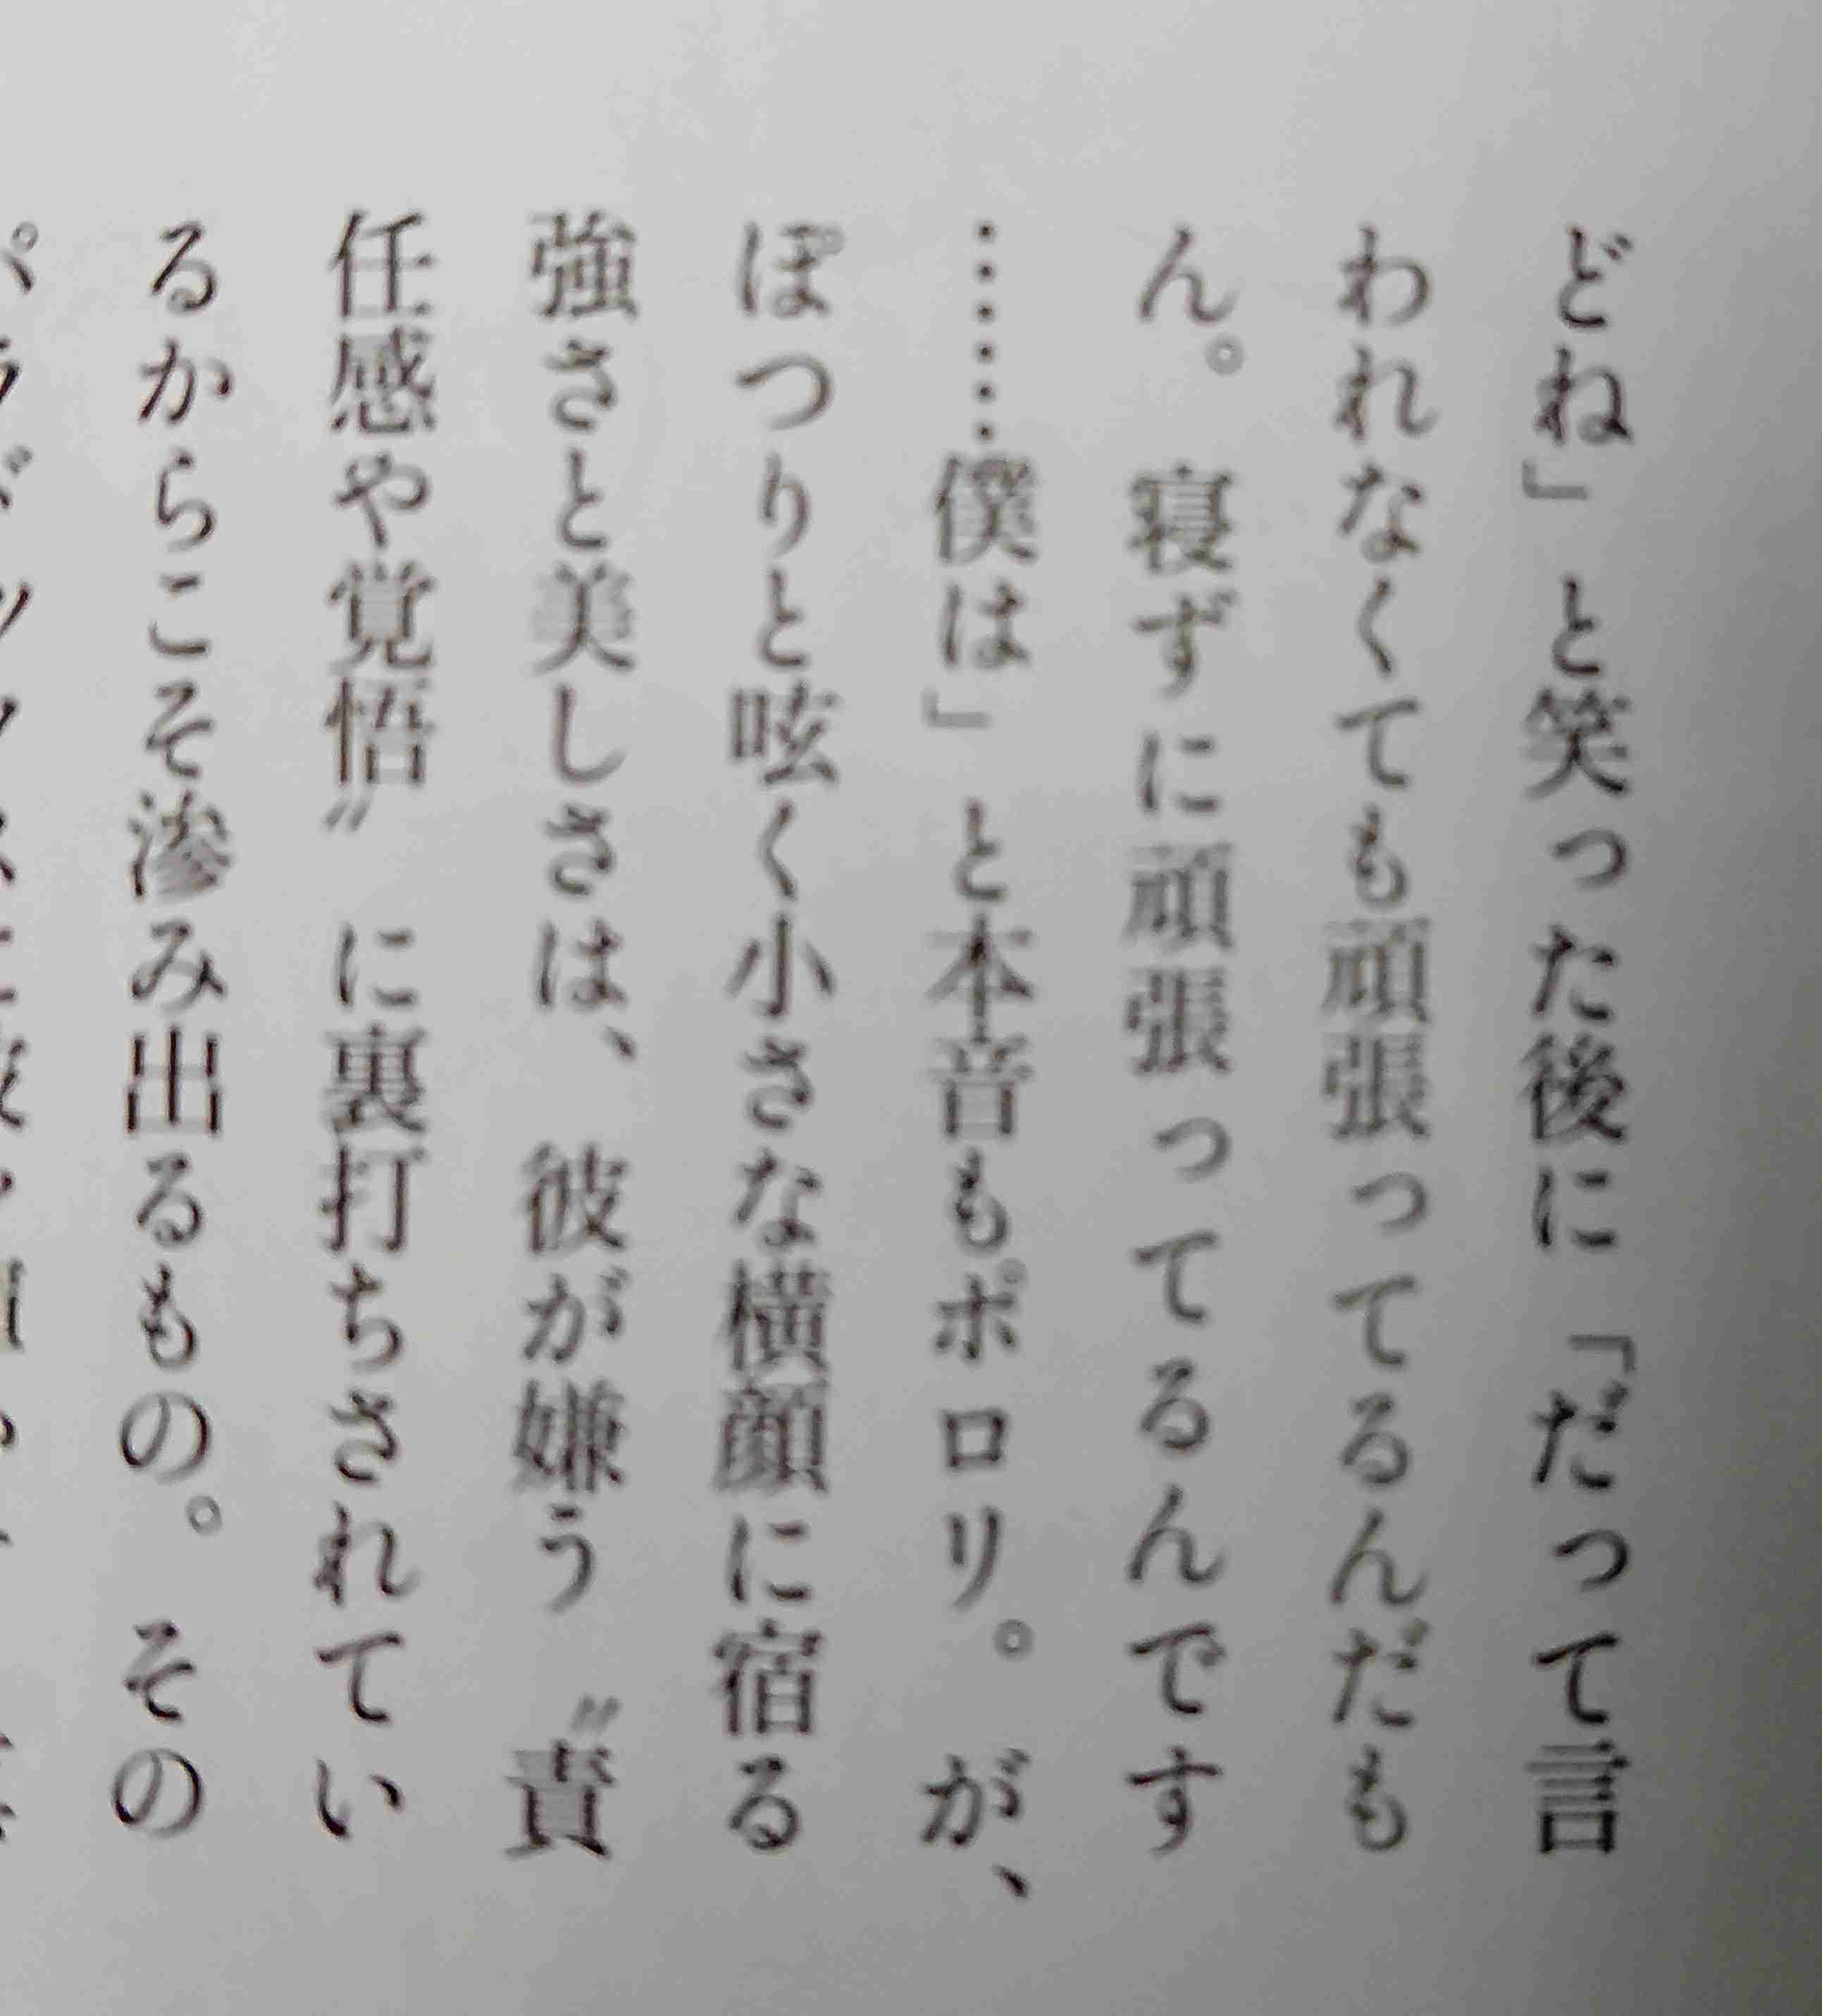 どね」と笑った後に「だって言
われなくても頑張ってるんだも
ん。寝ずに頑張ってるんです
……僕は」と本音もポロリ。が、
ぽつりと呟く小さな横顔に宿る
強さと美しさは、彼が嫌う〝責
任感や覚悟〟に裏打ちされてい
るからこそ滲み出るもの。その